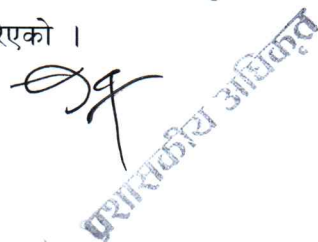 रएको ।
प्रशासकीय अधिकृत